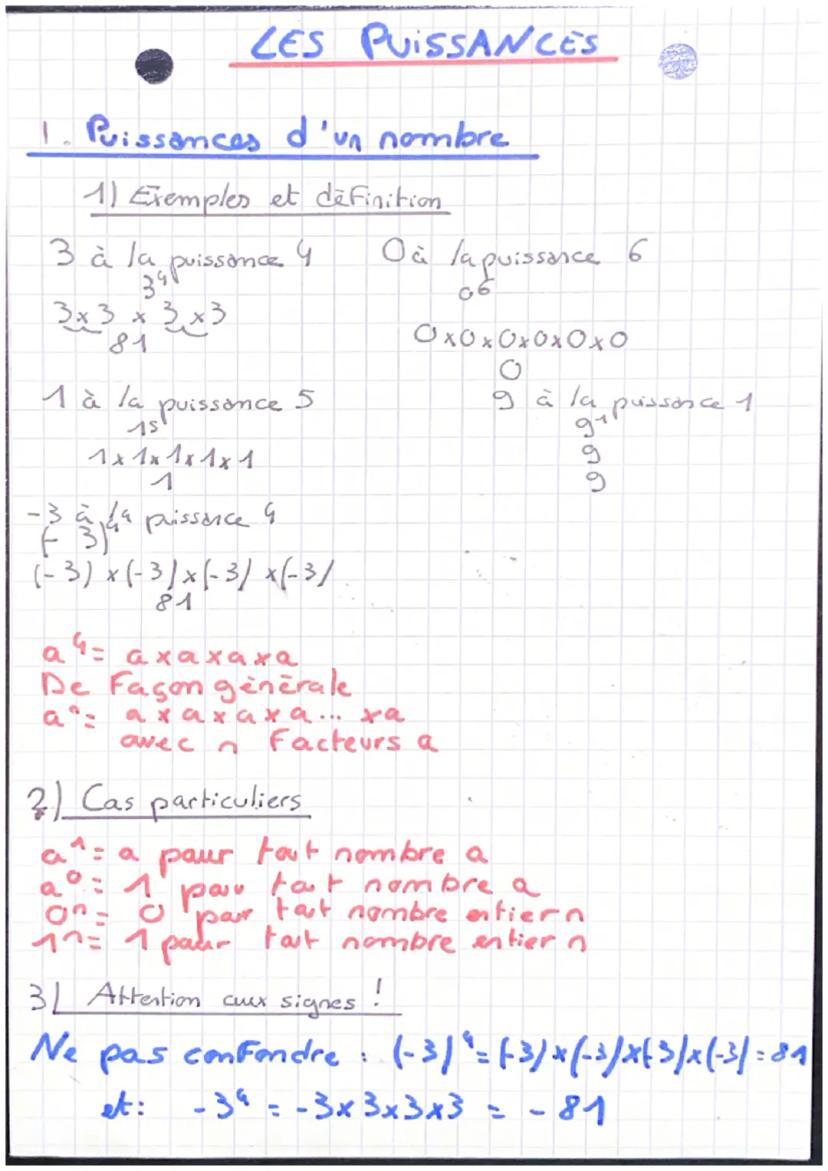 LES PUISSANCES
1. Puissances d'un nombre
1) Exemples et définition
3 à la puissance 4
3⁴
3x3 x 3x3
81
0 à la puissance 6
0⁶
0x0x0x0x0x0
0
1 à la puissance 5
1⁵
1x1x1x1x1
1
9 à la puissance 1
9¹
9
9
-3 à la puissance 4
(-3)⁴
(-3)x(-3)x(-3)x(-3)
81
a⁴= axaxaxa
De Façon générale
aⁿ= axaxaxa... xa
avec n Facteurs a
2) Cas particuliers
a¹= a pour tout nombre a
a⁰= 1 pour tout nombre a
0ⁿ= 0 pour tout nombre entier n
1ⁿ= 1 pour tout nombre entier n
3) Attention aux signes !
Ne pas confondre : (-3)⁴=(-3)x(-3)x(-3)x(-3)=81
et: -3⁴ = -3x3x3x3 = -81